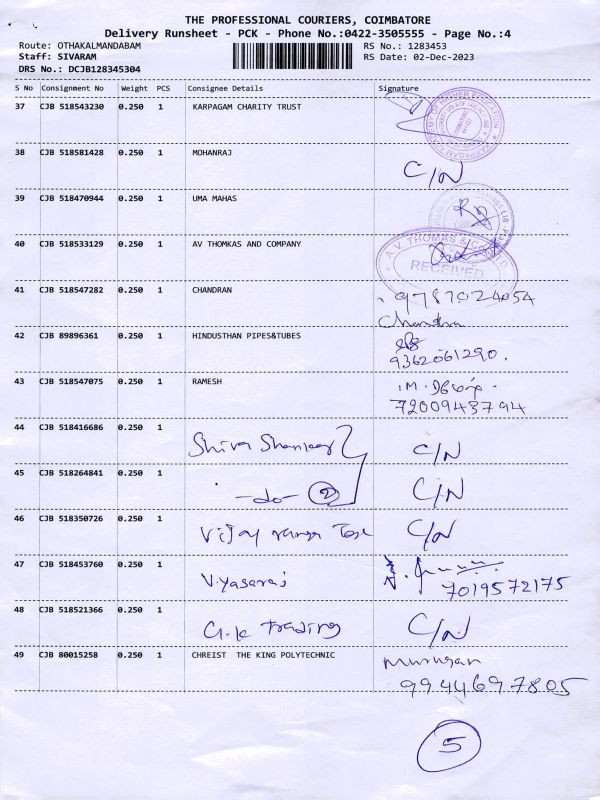 THE PROFESSIONAL COURIERS, COIMBATORE
Delivery Runsheet - PCK - Phone No.:0422-3505555 - Page No.:4
Route: OTHAKALMANDABAM RS No.: 1283453
Staff: SIVARAM RS Date: 02-Dec-2023
DRS No.: DCJB128345304
S No Consignment No Weight PCS Consignee Details Signature
37 CJB 518543230 0.250 1 KARPAGAM CHARITY TRUST
38 CJB 518581428 0.250 1 MOHANRAJ C/N
39 CJB 518470944 0.250 1 UMA MAHAS
40 CJB 518533129 0.250 1 AV THOMKAS AND COMPANY
A.V. THOMAS &
RECEIVED
41 CJB 518547282 0.250 1 CHANDRAN 9787024054
Chandra
42 CJB 89896361 0.250 1 HINDUSTHAN PIPES&TUBES
9362061290.
43 CJB 518547075 0.250 1 RAMESH
7200943794
44 CJB 518416686 0.250 1 Shiva C/N
45 CJB 518264841 0.250 1 -do- 2 C/N
46 CJB 518350726 0.250 1 Vijay C/N
47 CJB 518453760 0.250 1 Vyasaraj 7019572175
48 CJB 518521366 0.250 1 G.K Trading C/N
49 CJB 80015258 0.250 1 CHREIST THE KING POLYTECHNIC Murugan
9944697805
5